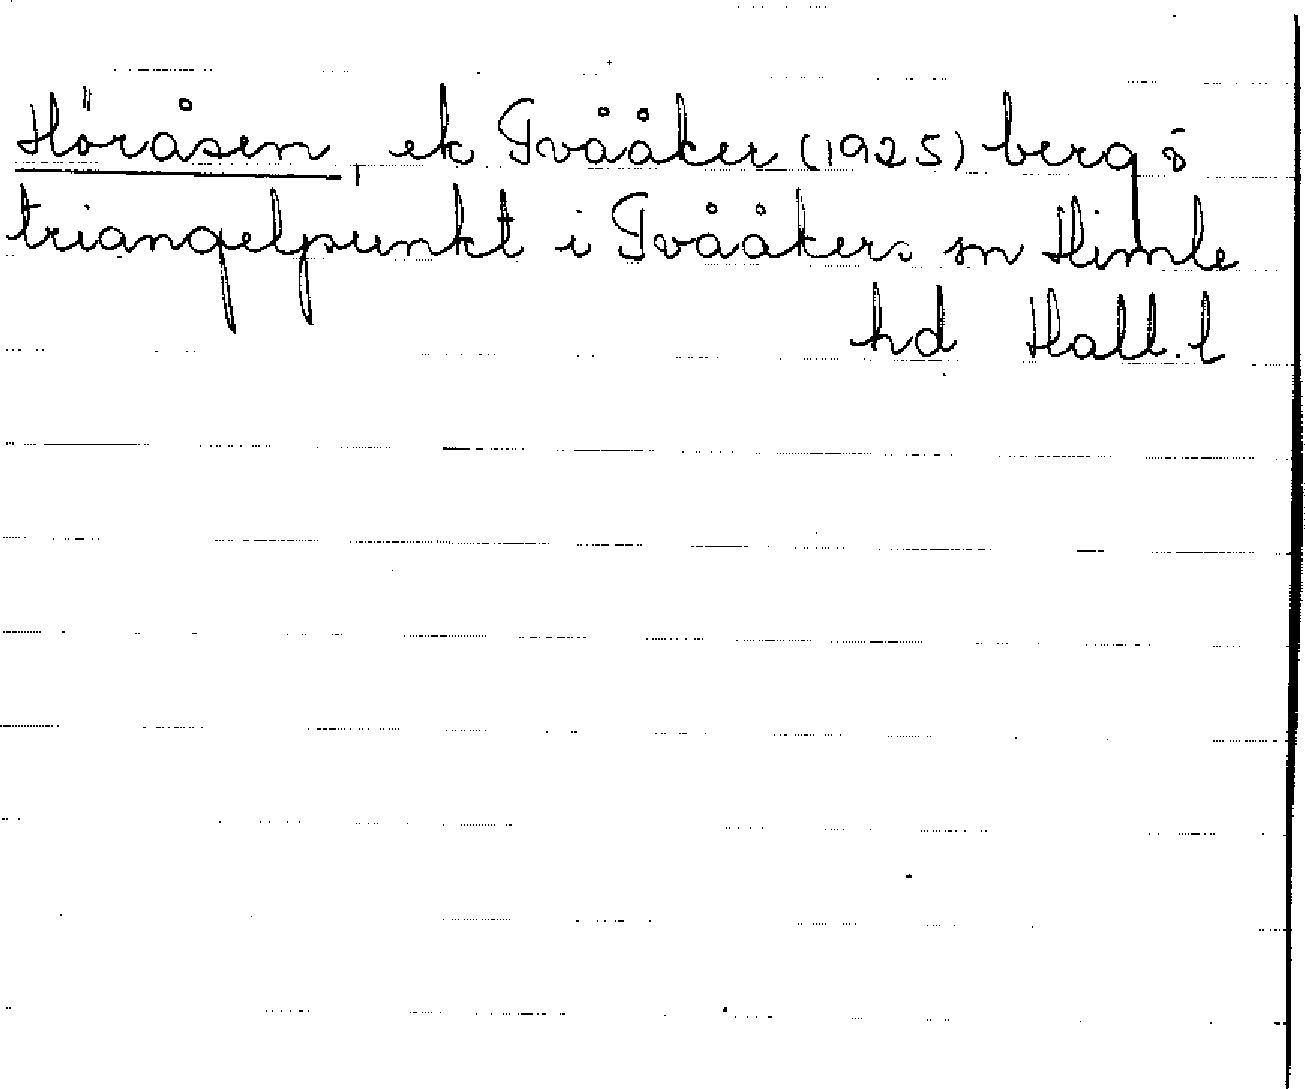 Höråsen, ek Tvååker (1925) berg o
triangelpunkt i Tvååkers sn Himle
hd Hall. l